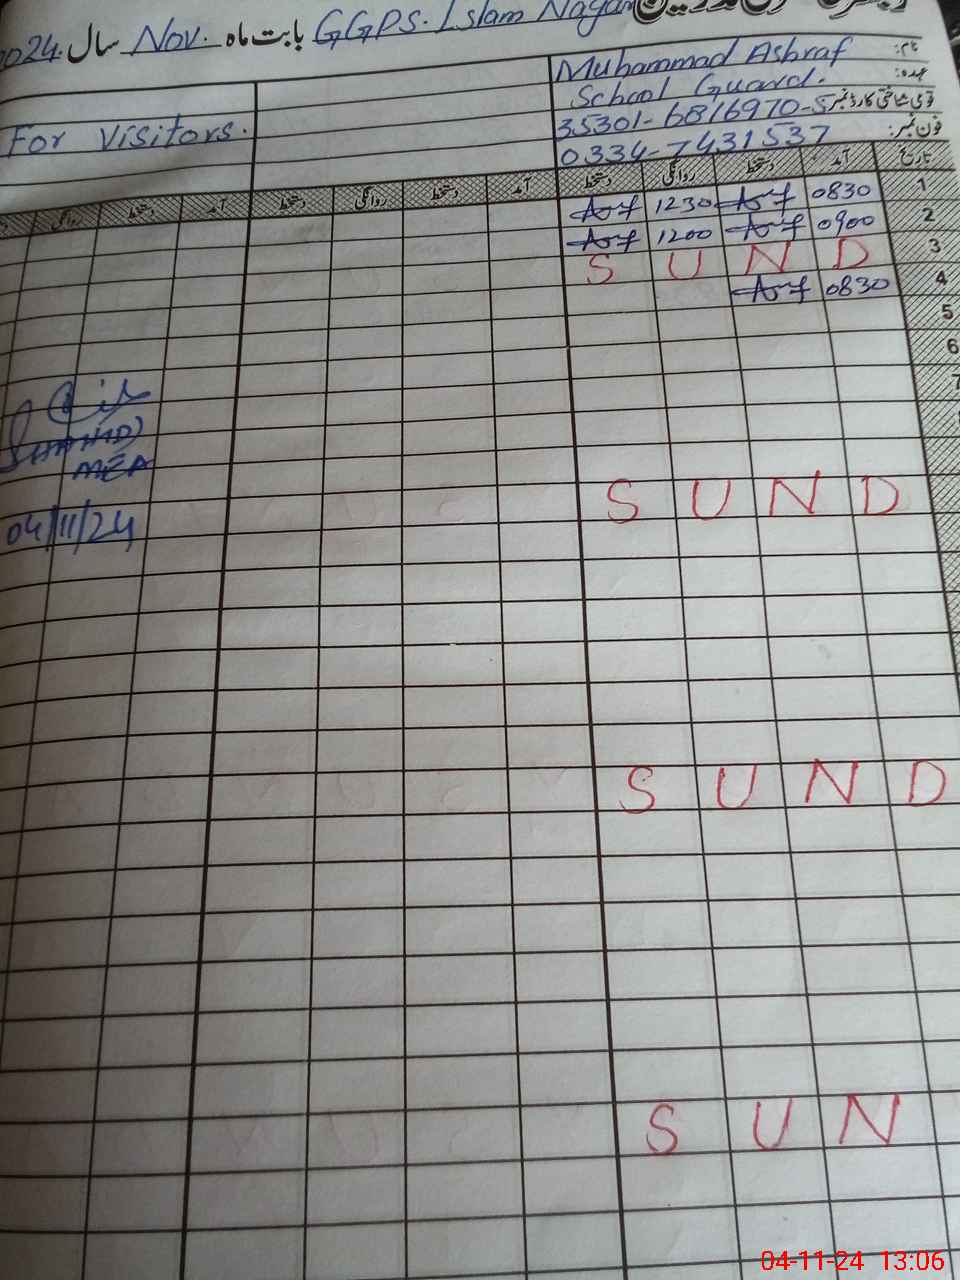 2024 سال Nov. بابت ماہ GGPS. Islam Nagar
نام: Muhammad Ashraf
عہدہ: School Guard.
قومی شناختی کارڈ نمبر 35301-6816970-5
فون نمبر: 0334-7431537
For Visitors.
تاریخ آمد دستخط روانگی دستخط آمد دستخط روانگی دستخط آمد دستخط روانگی
1 0830 1230
2 0900 1200
3 S U N D
4 0830
5
6
7
MEA
S U N D
04/11/24
S U N D
S U N
04-11-24 13:06